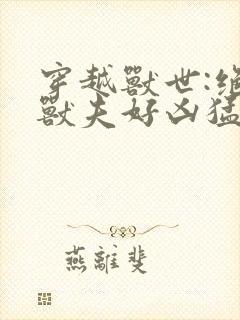 穿越獸世:絕
獸夫好凶猛
燕離斐